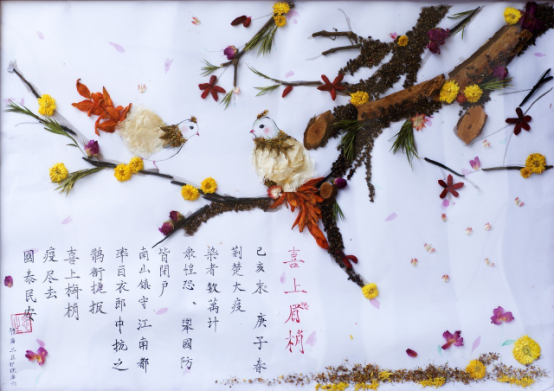 喜上眉梢
己亥末 庚子春
荆楚大疫
染者数萬计
衆惶恐、舉國防
皆閉户
南山镇守江南都
率白衣郎中抗之
鹊衔捷报
喜上梢
疫尽去
國泰民安